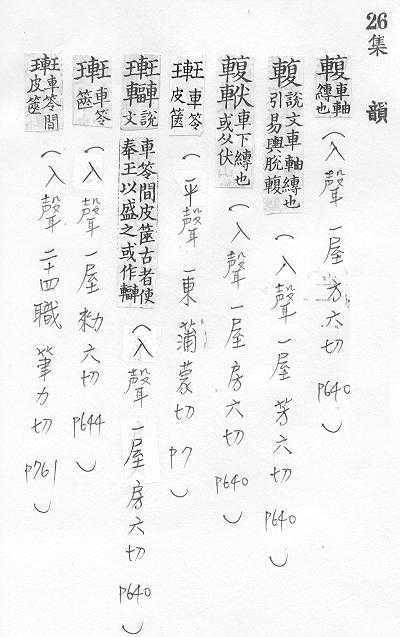 26集 韻
輹 車軸縛也 (入聲 一屋 方六切 P640)
輹 說文車軸縛也引易輿脫輹 (入聲 一屋 芳六切 P640)
輹 車下縛也或从伏 (入聲 一屋 房六切 P640)
車笭皮篋 (平聲 一東 蒲蒙切 P7)
說文車笭間皮篋古者使奉玉以盛之或作 (入聲 一屋 房六切 P640)
車笭篋 (入聲 一屋 勑六切 P644)
車笭間皮篋 (入聲 二十四職 筆力切 P761)